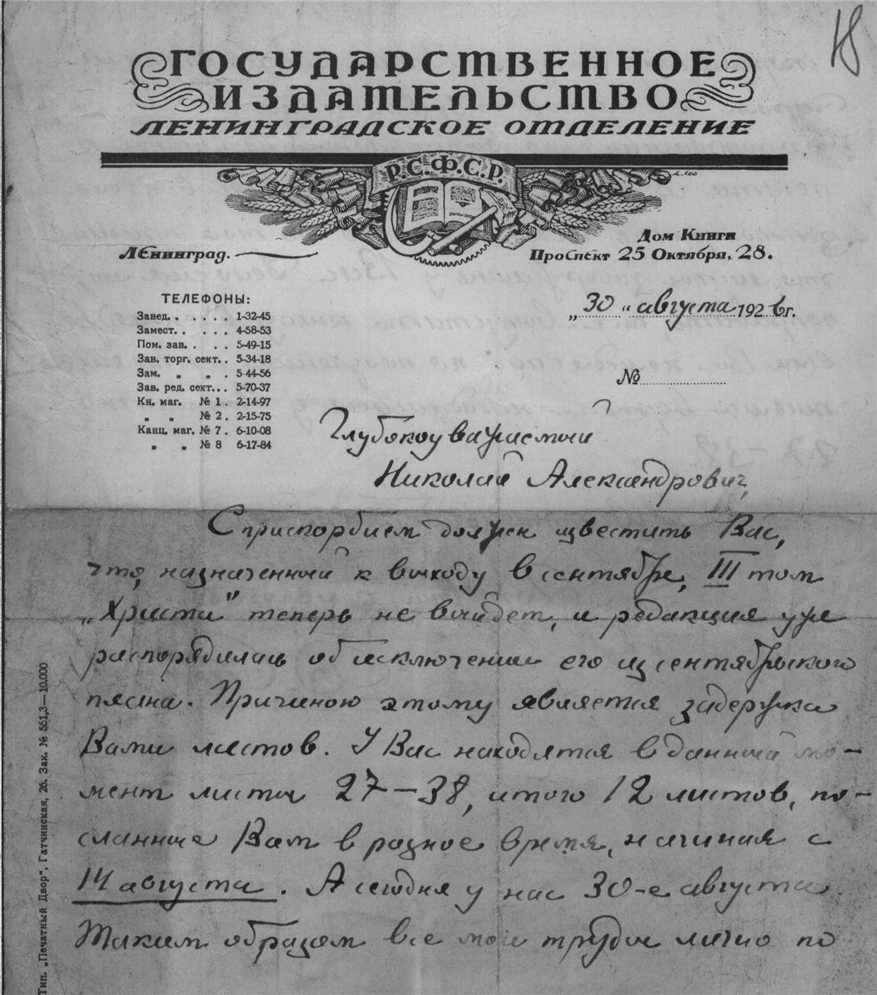 18
ГОСУДАРСТВЕННОЕ
ИЗДАТЕЛЬСТВО
ЛЕНИНГРАДСКОЕ ОТДЕЛЕНИЕ
Р.С.Ф.С.Р.
Ленинград.
Дом Книги
Проспект 25 Октября, 28.
ТЕЛЕФОНЫ:
Завед. . . . . . 1-32-45
Замест. . . . . 4-58-53
Пом. зав. . . . 5-49-15
Зав. торг. сект. . 5-34-18
Зам. „ „ . 5 44-56
Зав. ред. сект. . . 5-70-37
Кн. маг. № 1 . 2-14-97
„ „ № 2 . 2-15-75
Канц. маг. № 7 . 6-10-08
„ „ № 8 6-17-84
„30“ августа 1926г.
№
Глубокоуважаемый
Николай Александрович,
С прискорбием должен известить Вас,
что, назначенный к выходу в сентябре, III том
„Христа" теперь не выйдет, и редакция уже
распорядилась об исключении его из сентябрьского
плана. Причиною этому является задержка
Вами листов. У Вас находятся в данный мо-
мент листы 27—38, итого 12 листов, по-
сланные Вам в разное время, начиная с
14 августа. А сегодня у нас 30-е августа.
Таким образом все мои труды лично по
Тип. „Печатный Двор", Гатчинская, 26. Зак. № 561,3—10.000